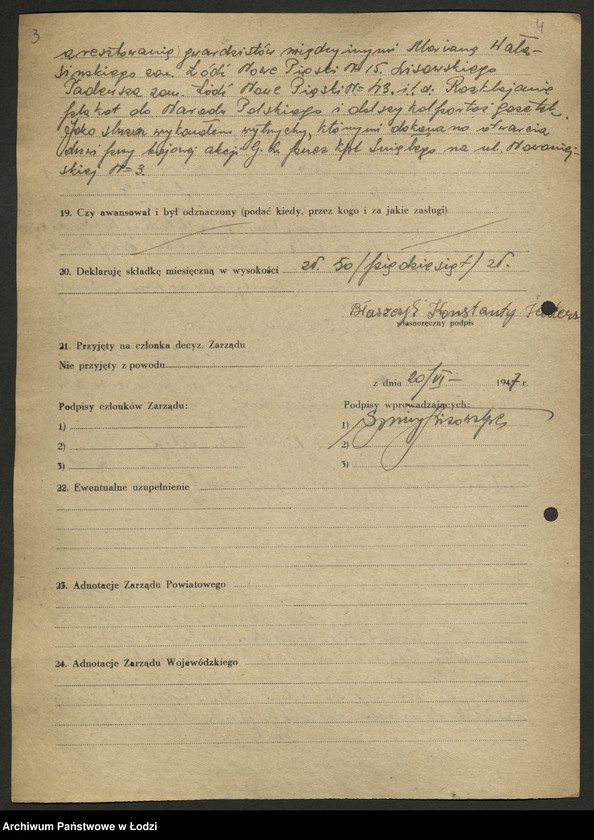 3
4
aresztowanie gwardzistów między innymi Mariana Wała-
sińskiego zam. Łódź Nowe Piaski № 15. Lisowskiego
Tadeusza zam. Łódź Nowe Piaski № 43. i.t.d. Rozklejanie
plakat do Narodu Polskiego i dalszy kolportaż gazetek.
Jako ślusarz wykonałem wytrychy, którymi dokonano otwarcia
drzwi przy bojowej akcji G.L. przez
na ul.
skiej № 3.
19. Czy awansował i był odznaczony (podać kiedy, przez kogo i za jakie zasługi)
20. Deklaruję składkę miesięczną w wysokości zł. 50 /pięćdziesiąt/ zł.
Błaszczyk Konstanty
własnoręczny podpis
21. Przyjęty na członka decyz. Zarządu
Nie przyjęty z powodu
z dnia 20/VI – 1947 r.
Podpisy członków Zarządu:
Podpisy wprowadzających:
1)
1)
2)
2)
3)
3)
22. Ewentualne uzupełnienie
23. Adnotacje Zarządu Powiatowego
24. Adnotacje Zarządu Wojewódzkiego
Archiwum Państwowe w Łodzi